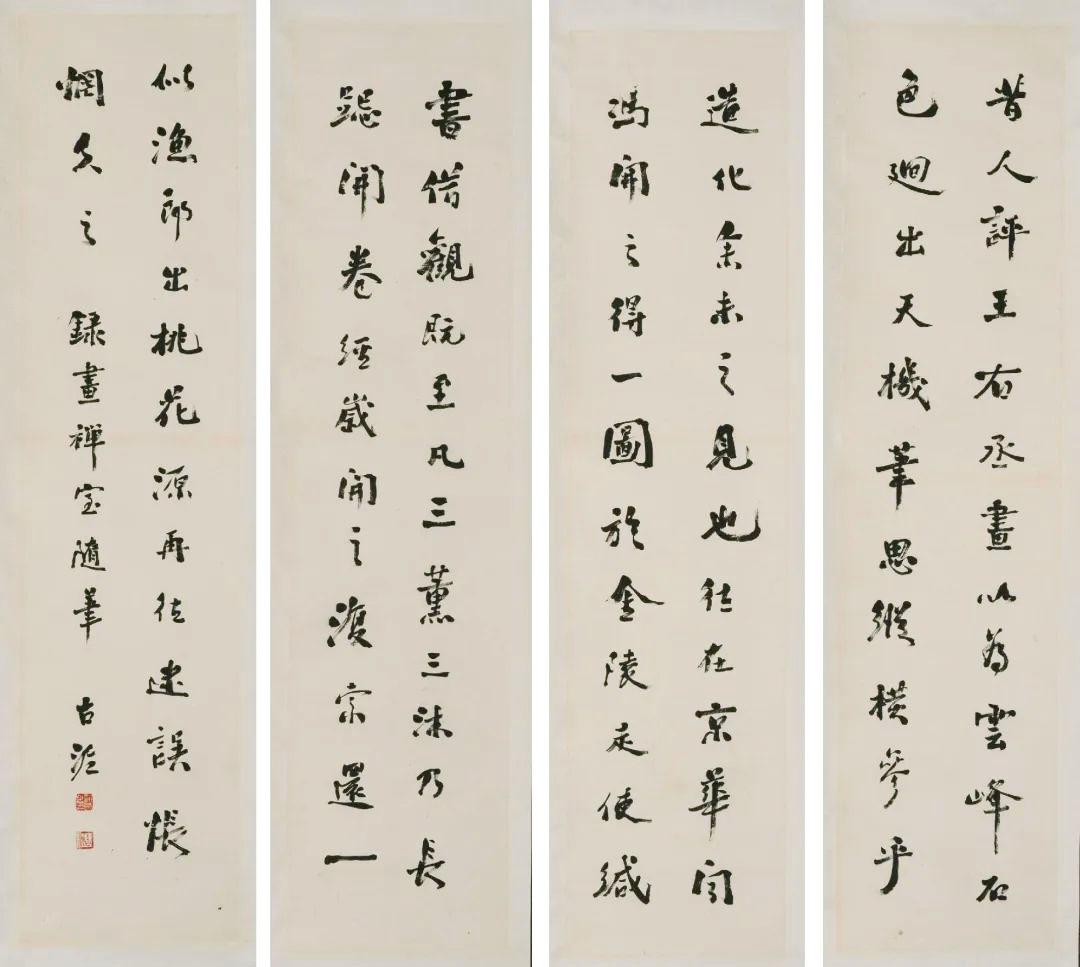 昔人評王右丞畫以為雲峰石
色迥出天機筆思縱橫參乎
造化余未之見也往在京華聞
馮開之得一圖於金陵走使緘
書借觀既至凡三薰三沐乃長
跽開卷經歲開之復索還一
似漁郎出桃花源再往迷誤悵
惘久之 錄畫禪室隨筆 古泥